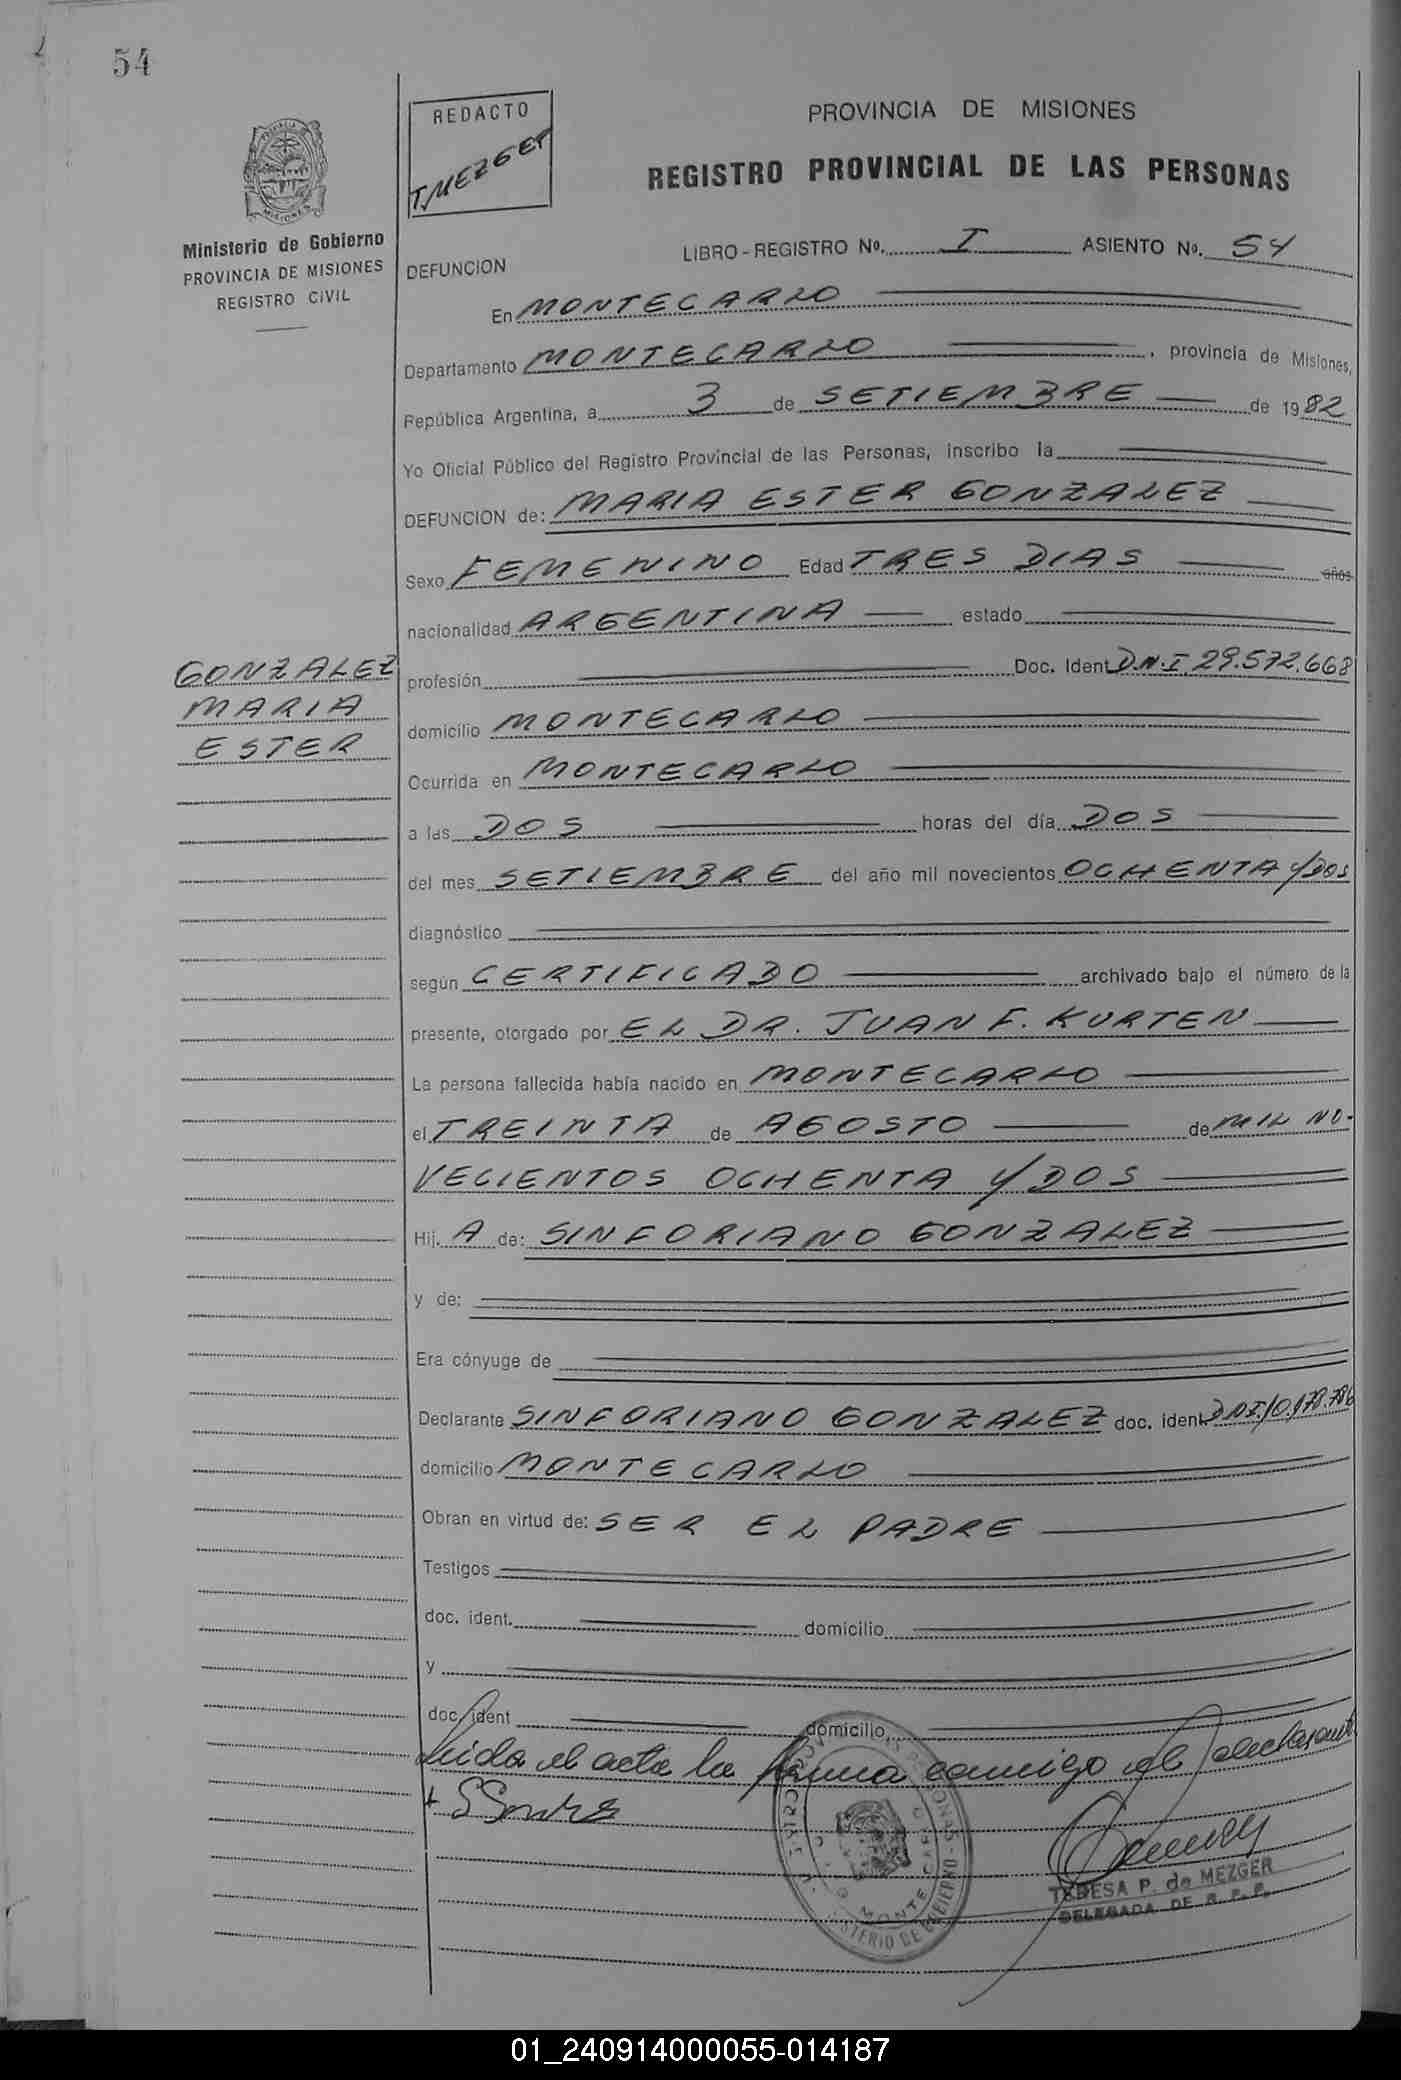 54
REDACTO
T. MEZGER
PROVINCIA DE MISIONES
REGISTRO PROVINCIAL DE LAS PERSONAS
Ministerio de Gobierno
PROVINCIA DE MISIONES
REGISTRO CIVIL
LIBRO - REGISTRO Nº. I ASIENTO Nº. 54
DEFUNCION
En MONTECARLO
Departamento MONTECARLO, provincia de Misiones,
República Argentina, a 3 de SETIEMBRE de 1982
Yo Oficial Público del Registro Provincial de las Personas, inscribo la
DEFUNCION de: MARIA ESTER GONZALEZ
Sexo FEMENINO Edad TRES DIAS años
nacionalidad ARGENTINA estado
GONZALEZ
MARIA
ESTER
profesión Doc. Ident D.N.I. 29.572.668
domicilio MONTECARLO
Ocurrida en MONTECARLO
a las DOS horas del día DOS
del mes SETIEMBRE del año mil novecientos OCHENTA Y DOS
diagnóstico
según CERTIFICADO archivado bajo el número de la
presente, otorgado por EL DR. JUAN F. KURTEN
La persona fallecida había nacido en MONTECARLO
el TREINTA de AGOSTO de MIL NO-
VECIENTOS OCHENTA Y DOS
Hij. A de: SINFORIANO GONZALEZ
y de:
Era cónyuge de
Declarante SINFORIANO GONZALEZ doc. ident. DNI. 10.178.786
domicilio MONTECARLO
Obran en virtud de: SER EL PADRE
Testigos
doc. ident. domicilio
y
doc. ident domicilio
Leida el acta la firma conmigo el declarante
TERESA P. de MEZGER
DELEGADA DE R. P. P.
01_240914000055-014187